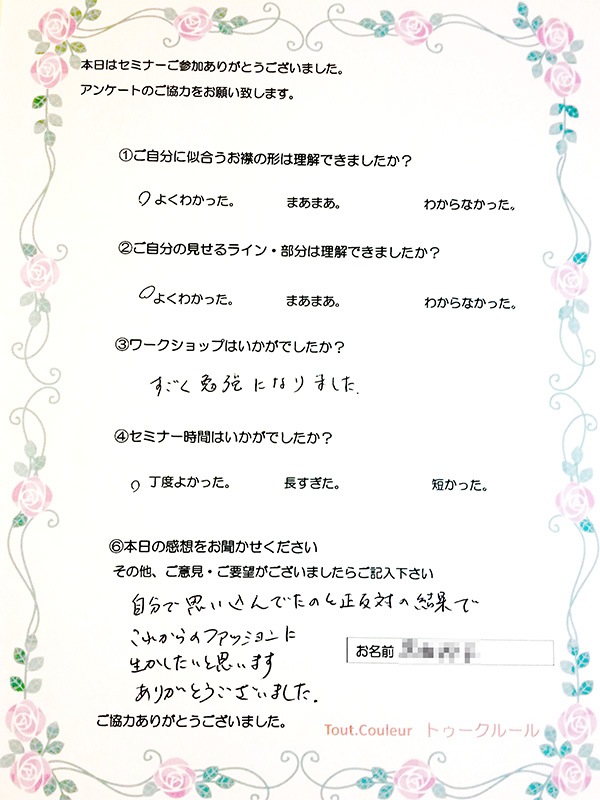 本日はセミナーご参加ありがとうございました。
アンケートのご協力をお願い致します。
①ご自分に似合うお襟の形は理解できましたか？
よくわかった。 まあまあ。 わからなかった。
②ご自分の見せるライン・部分は理解できましたか？
よくわかった。 まあまあ。 わからなかった。
③ワークショップはいかがでしたか？
すごく勉強になりました.
④セミナー時間はいかがでしたか？
丁度よかった。 長すぎた。 短かった。
⑥本日の感想をお聞かせください
その他、ご意見・ご要望がございましたらご記入下さい
自分で思い込んでたのと正反対の結果で
これからのファッションに
生かしたいと思います
ありがとうございました.
お名前
ご協力ありがとうございました。
Tout.Couleur トゥークルール